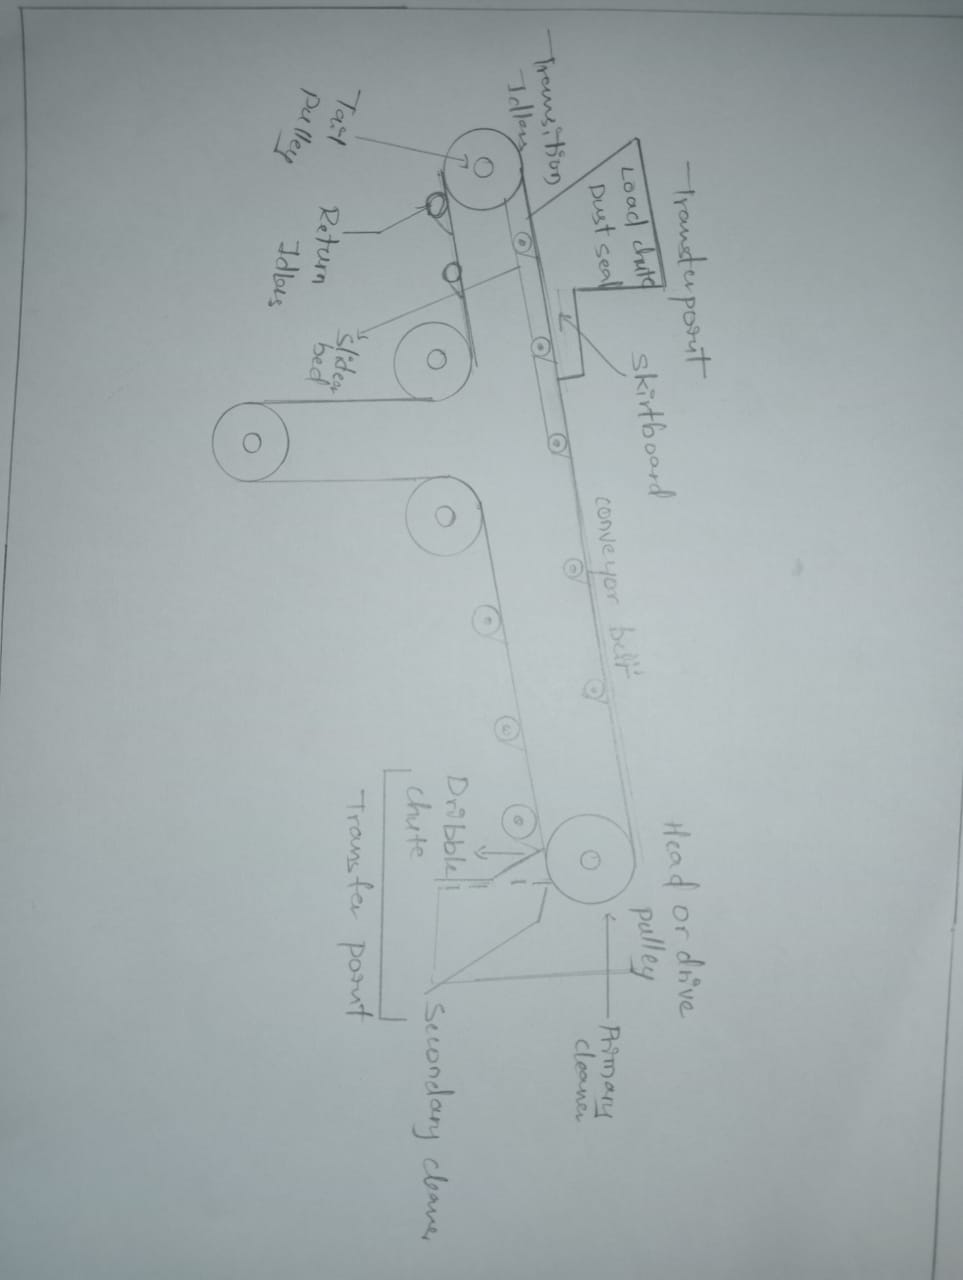 Transfer point
Load chute
Dust seal
Skirtboard
conveyor belt
Head or drive
pulley
Primary
cleaner
Transition
Idlers
Dribble
chute
Secondary cleaner
Transfer point
Tail
pulley
Return
Idlers
Slider
bed